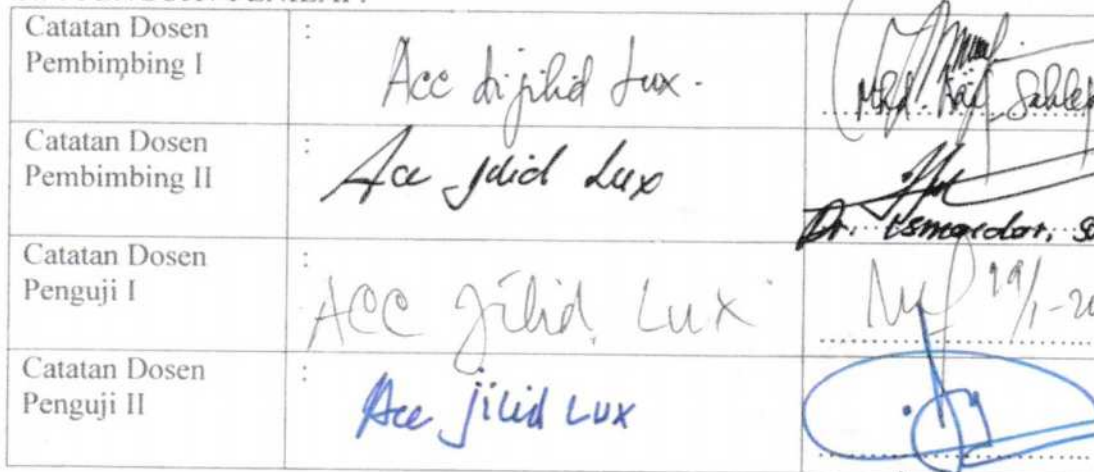 Catatan Dosen
Pembimbing I
:
Acc dijilid Lux.
Catatan Dosen
Pembimbing II
:
Acc jilid Lux
Dr. Ismaidar,
Catatan Dosen
Penguji I
:
ACC Jilid Lux
Catatan Dosen
Penguji II
:
Acc jilid Lux